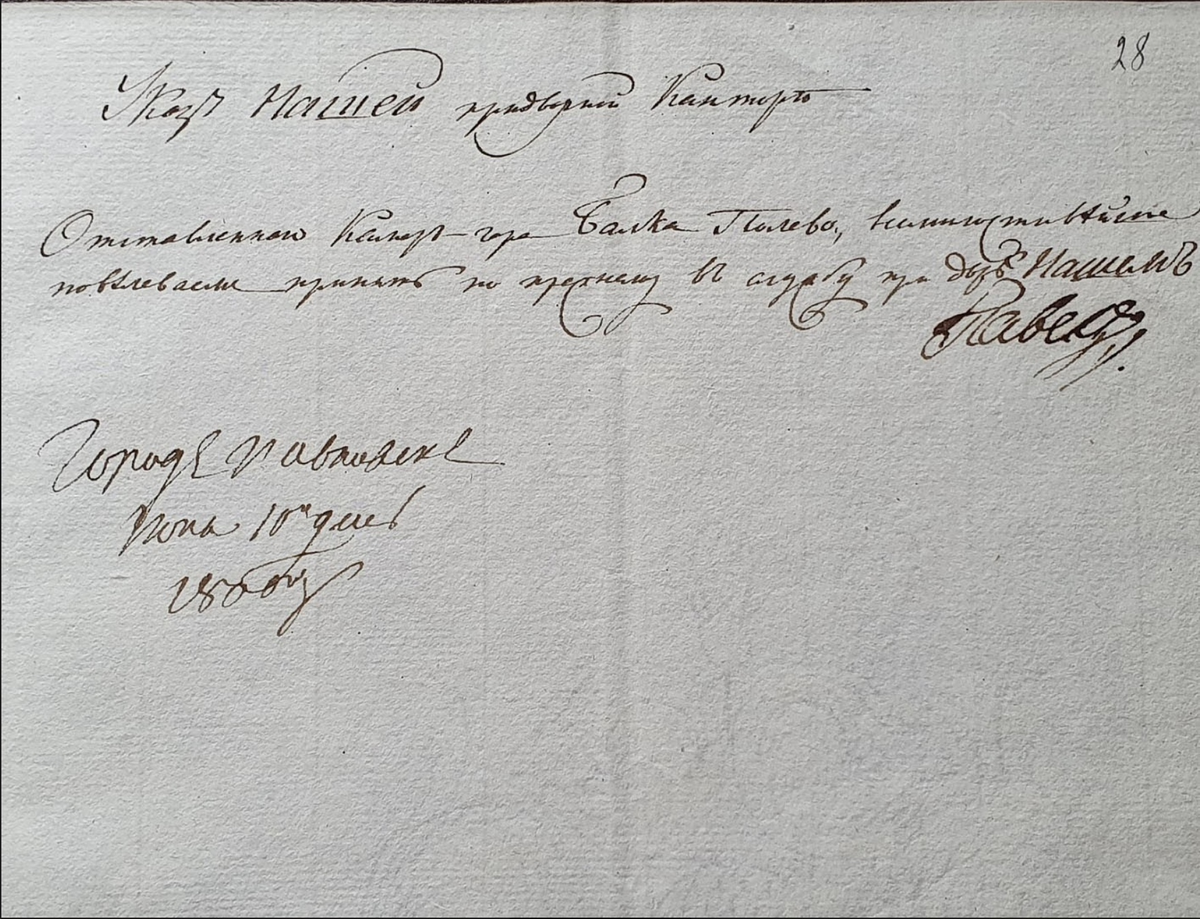 28
Указъ Нашей придворной Канторѣ
Отставленнаго Камеръ-гера Балка Полево, всемилостивѣйше
повѣлеваемъ принять по прежнему въ службу при дворѣ Нашемъ
Павелъ
Городъ Павловскъ
Июня 10го дня
1800го